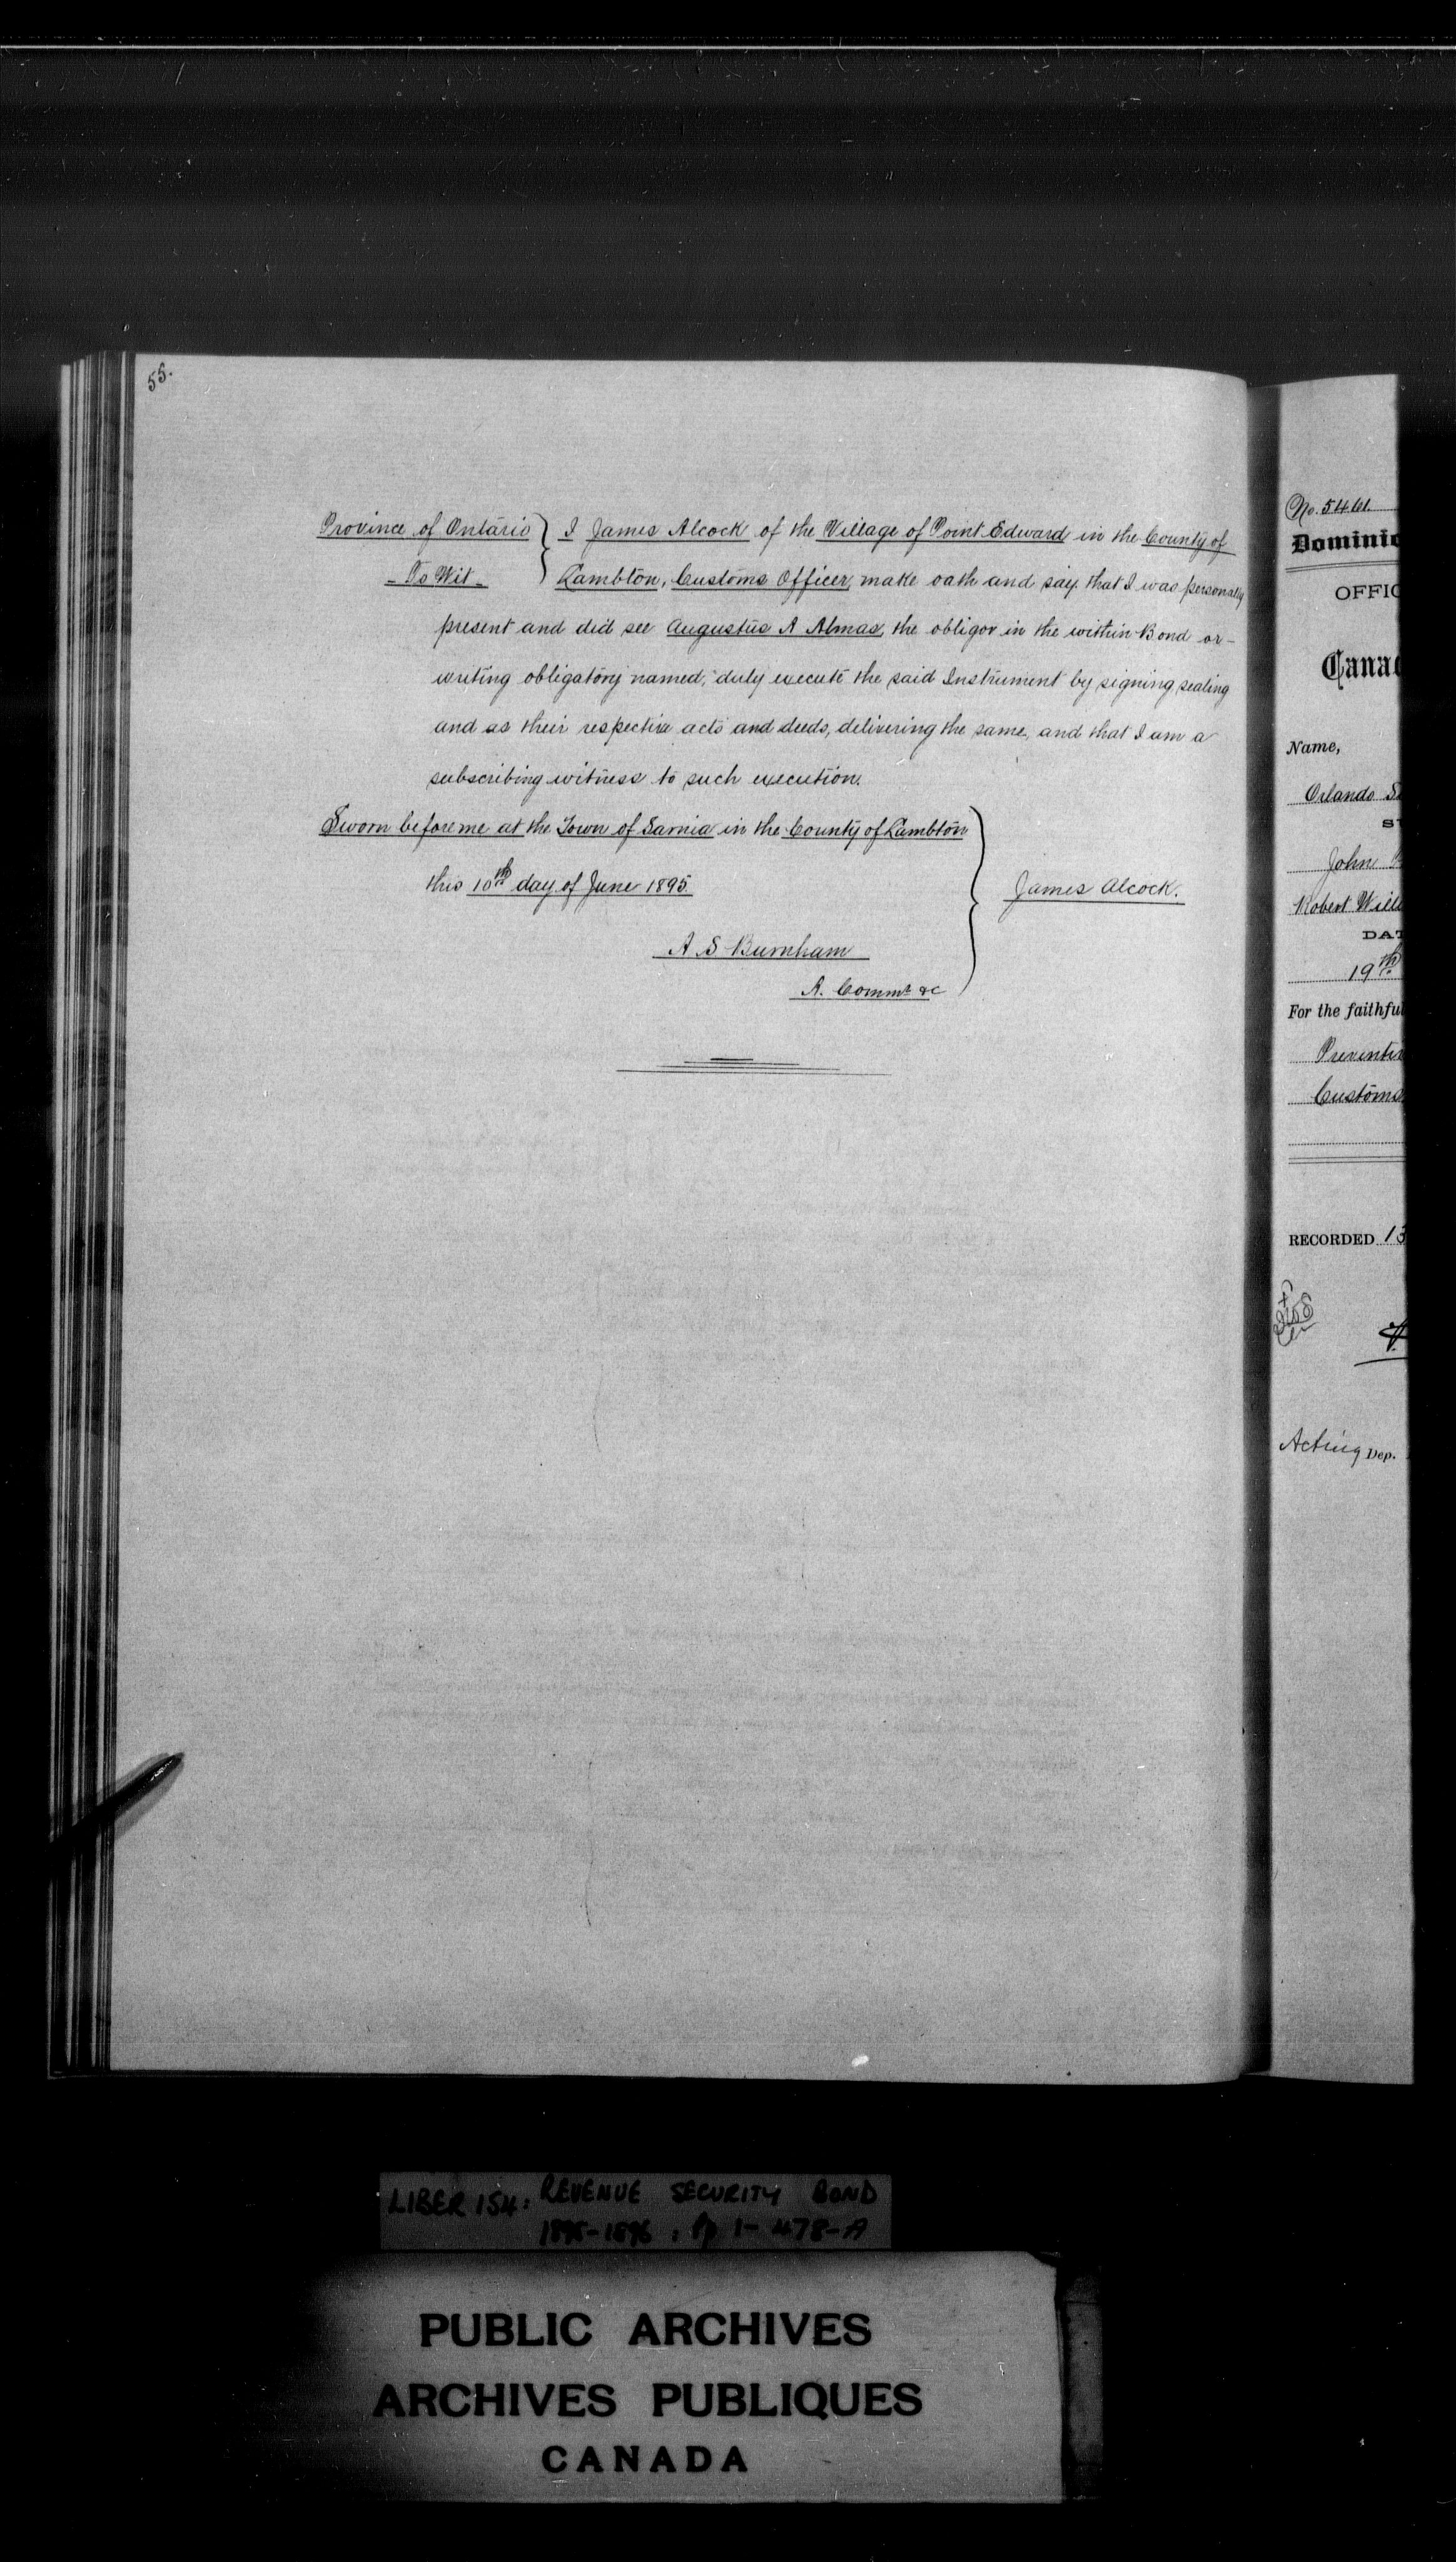 55.
Province of Ontario } I James Alcock of the Village of Point Edward in the County of
- To Wit - Lambton, Customs Officer, make oath and say, that I was personally
present and did see Augustus A Almas, the obligor in the within Bond or
writing obligatory named, duly execute the said Instrument by signing, sealing
and as their respective acts and deeds, delivering the same, and that I am a
subscribing witness to such execution.
Sworn before me at the Town of Sarnia in the County of Lambton
this 10th day of June 1895
James Alcock.
A S Burnham
A. Commr &c
No. 5461
Dominic
OFFIC
Canad
Name,
Orlando
John
Robert Will
DAT
19th
For the faithful
Preventiv
Customs
RECORDED 13
Acting Dep.
LIBER 154: REVENUE SECURITY BOND
1895-1896 : Pp 1-478-A
PUBLIC ARCHIVES
ARCHIVES PUBLIQUES
CANADA